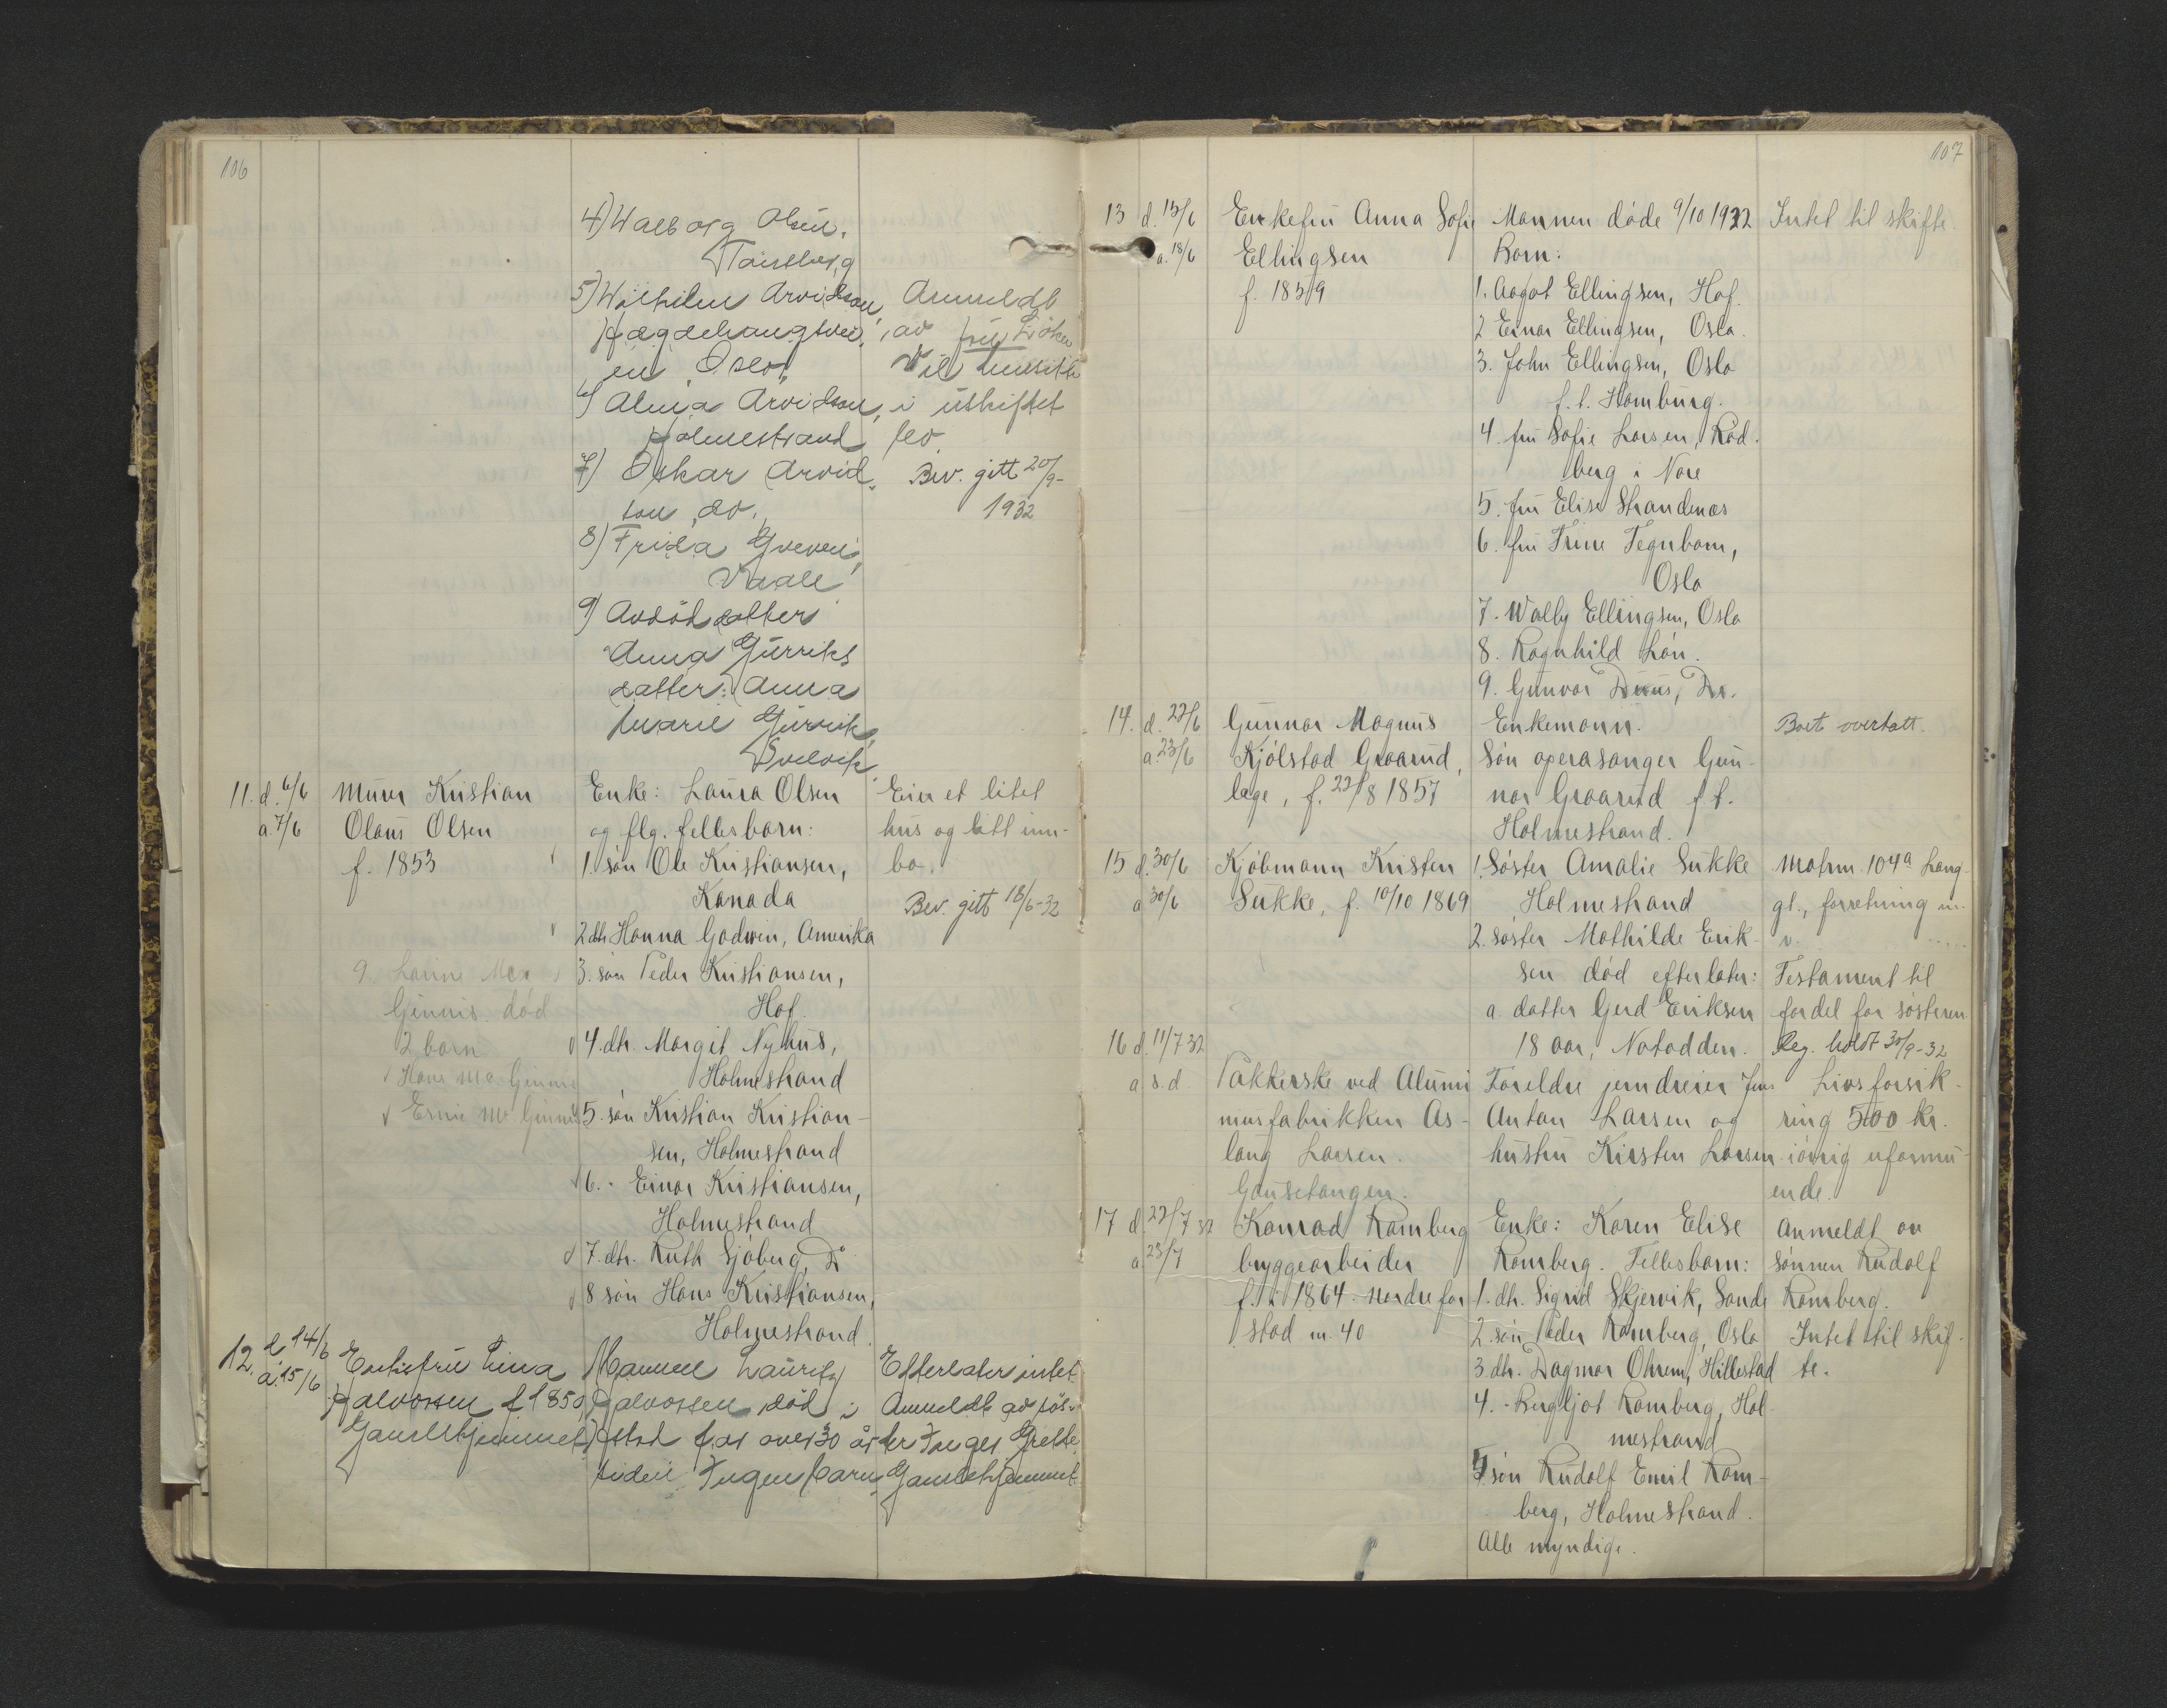 106
4) Walborg Olsen,
Tønsberg
5) Wilhelm Arvidson,
Hegdehaugsvei-
en, Oslo,
6) Alma Arvidson,
Holmestrand
7) Oskar Arvid-
son, do.
8) Frida
Vaale
9) Avdød datter
Anna
datter: Anna
Marie
Svelvik
Anmeldt
av fru
Vil
i uskiftet
bo.
Bev. gitt 20/9-
1932
11. d. 6/6
a. 7/6
Murer Kristian
Olaus Olsen
f. 1853
Enke: Laura Olsen
og flg. fellesbarn:
1. søn Ole Kristiansen,
Kanada
2 dtr Hanna Godwin, Amerika
3. søn Peder Kristiansen,
Hof.
4. dtr. Margit Nyhus,
Holmestrand
5. søn Kristian Kristian-
sen, Holmestrand
6. - Einar Kristiansen,
Holmestrand
7. dtr. Ruth Sjøberg, Dr
8 søn Hans Kristiansen,
Holmestrand.
Eier et litet
hus og litt inn-
bo.
Bev. gitt 18/6-32
9. Mc
Ginnis. død
2 barn
Hans Mc Ginnis
Ernie Mc Ginnis
12. d 14/6
a. 15/6
Enkefru Lina
Halvorsen f 1850
Gamlehjemmet
Mannen Lauritz
Halvorsen død i
for over 30 år
siden. Ingen barn
Efterlater intet.
Anmeldt av søs-
ter Grette
Gamlehjemmet.
107
13 d. 15/6
a. 18/6
Enkefru Anna Sofie
Ellingsen
f. 1859
Mannen døde 9/10 1922
Barn:
1. Aagot Ellingsen, Hof.
2 Einar Ellingsen, Oslo.
3. John Ellingsen, Oslo
f.t. Hamburg.
4. fru Sofie Larsen, Rød-
berg i Nore
5. fru Elise Strandenæs
6. fru Trine Tegnbom,
Oslo
7. Wally Ellingsen, Oslo
8. Ragnhild
9. Gunvor Duus, Dr.
Intet til skifte.
14. d. 22/6
a. 23/6
Gunnar Magnus
Kjølstad Graarud,
læge, f. 23/8 1857
Enkemann.
Søn operasanger Gun-
nar Graarud f.t.
Holmestrand.
Boet overtatt.
15 d. 30/6
a 30/6
Kjøbmann Kristen
Sukke, f. 10/10 1869
1. Søster Amalie Sukke
Holmestrand
2. søster Mathilde Erik-
sen død efterlater:
a. datter Gerd Eriksen
18 aar, Notodden.
Matrn. 104a Lang-
gt., forretning m.
v.
Testament til
fordel for søsteren
Reg. holdt 30/9-32
16 d. 11/7 32
a s.d.
Pakkerske ved Alumi
niusfabrikken As-
laug Larsen.
Gausetangen.
Foreldre jerndreier Jens
Anton Larsen og
hustru Kirsten Larsen
Livsforsik-
ring 500 kr.
iøvrig uformu-
ende.
17 d. 22/7 32
a 23/7
Konrad Ramberg
bryggearbeider
f. 1864. Nordre for
stad nr. 40
Enke: Karen Elise
Ramberg. Fellesbarn:
1. dtr. Sigrid Skjervik, Sande
2. søn Peder Ramberg, Oslo
3 dtr. Dagmar Ohren, Hillestad
4. - Bergljot Ramberg, Hol-
mestrand
5 søn Rudolf Emil Ram-
berg, Holmestrand.
Alle myndige.
Anmeldt av
sønnen Rudolf
Ramberg.
Intet til skif-
te.